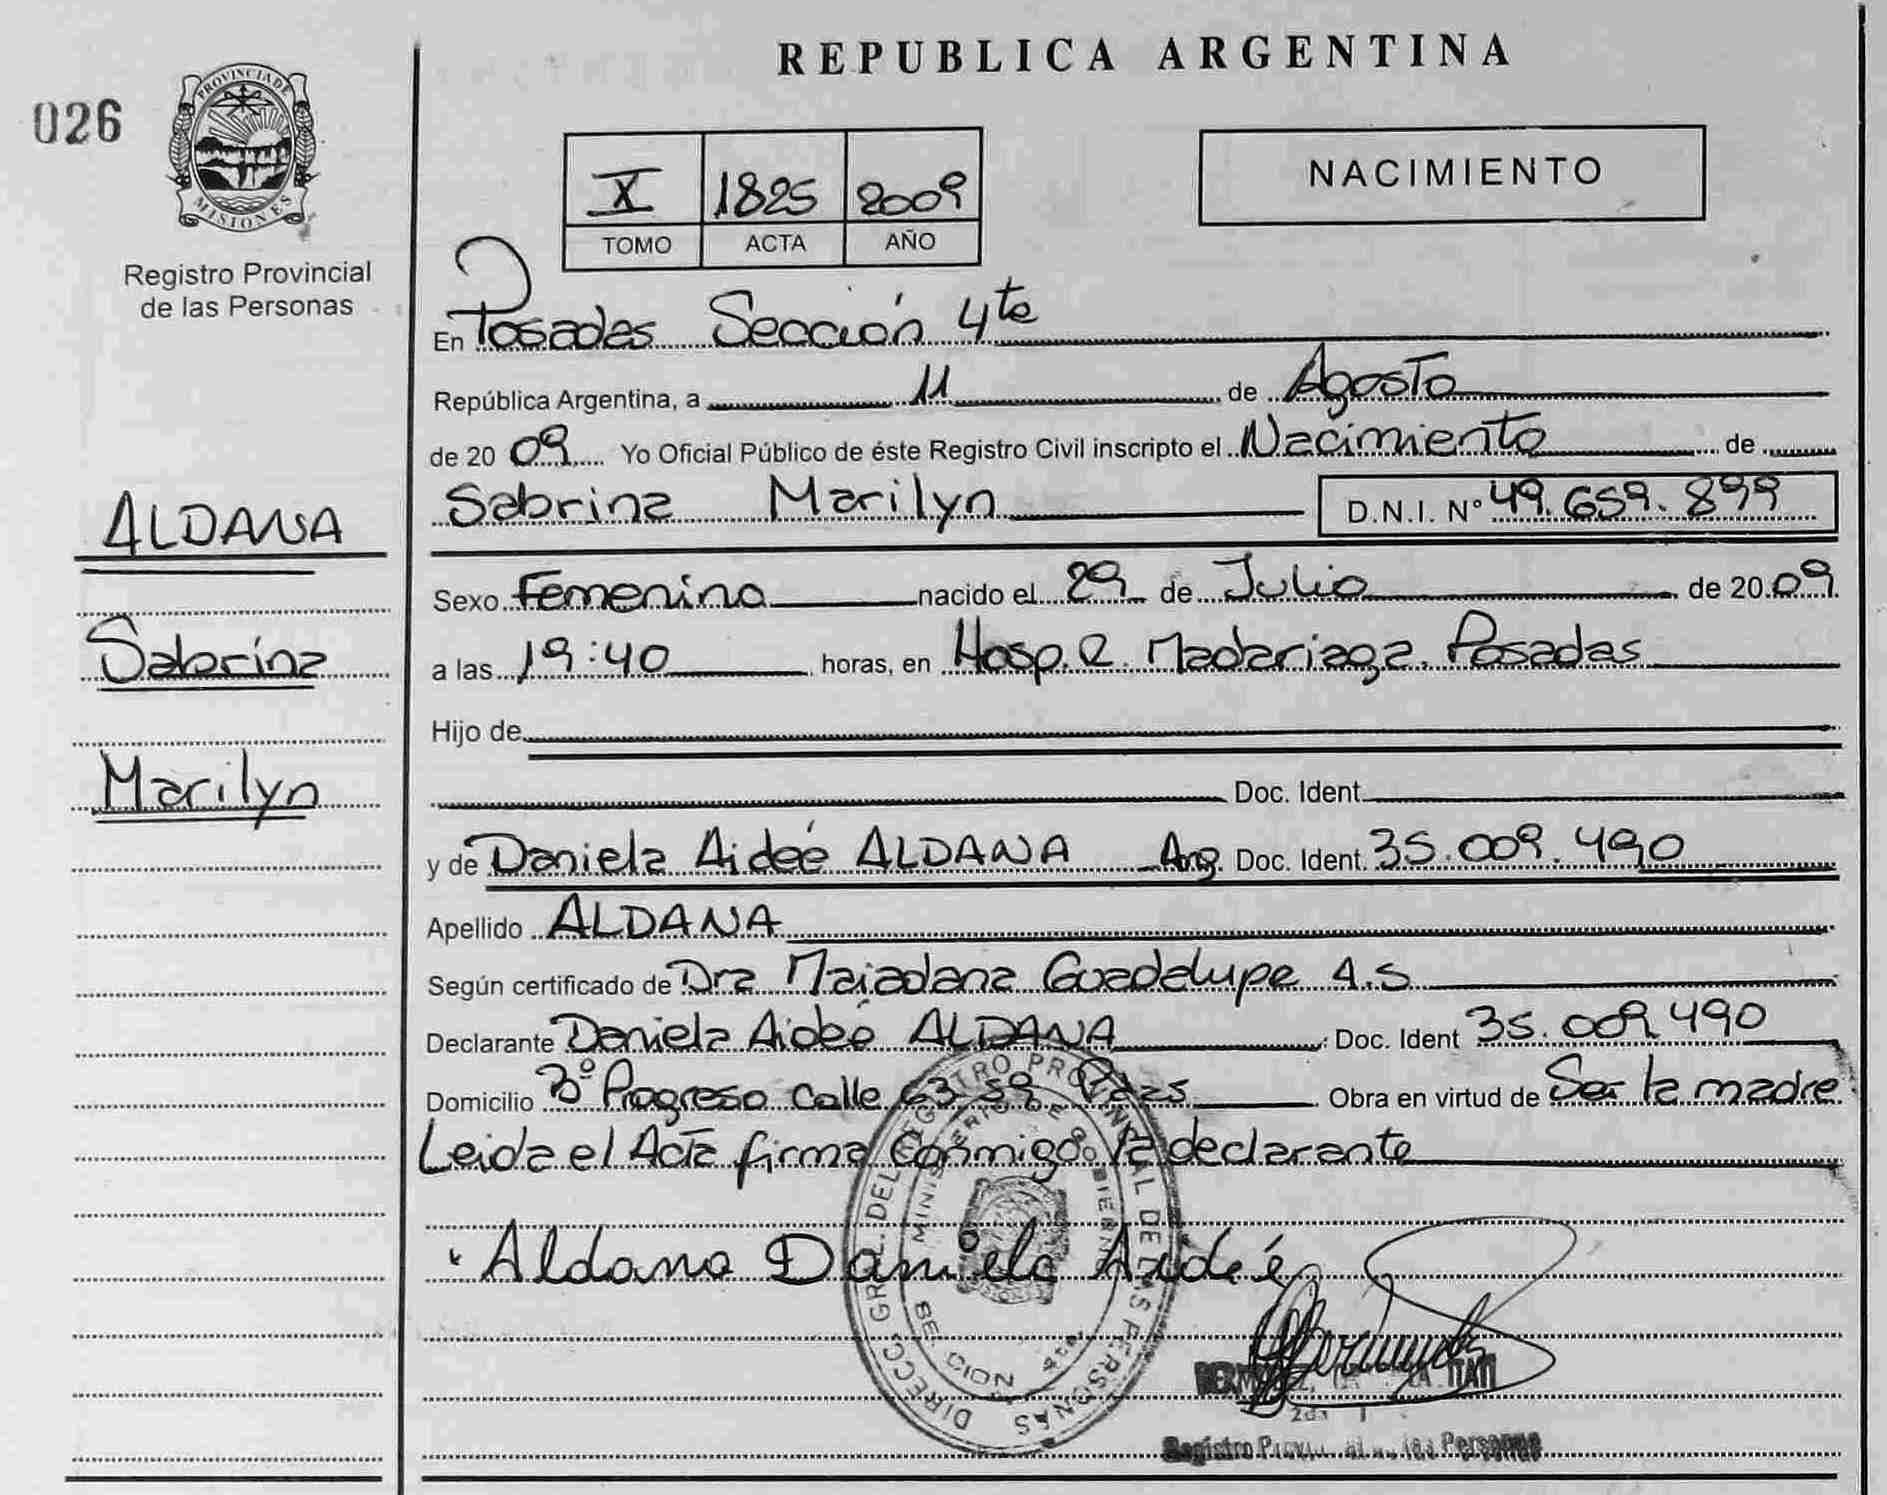 REPUBLICA ARGENTINA
026
PROVINCIA DE
MISIONES
Registro Provincial
de las Personas
X 1825 2009
TOMO ACTA AÑO
NACIMIENTO
En Posadas Sección 4ta
República Argentina, a 11 de Agosto
de 2009 Yo Oficial Público de éste Registro Civil inscripto el Nacimiento de
Sabrina Marilyn D.N.I. Nº 49.659.899
ALDANA
Sabrina
Marilyn
Sexo Femenino nacido el 29 de Julio de 2009
a las 19:40 horas, en Hosp. R. Madariaga. Posadas
Hijo de
Doc. Ident.
y de Daniela Aideé ALDANA Arg. Doc. Ident. 35.009.490
Apellido ALDANA
Según certificado de Dra Maiadana Guadelupe A.S
Declarante Daniela Aideé ALDANA Doc. Ident 35.009.490
Domicilio Bº Progreso calle 63 59 Pdas Obra en virtud de Ser la madre.
Leida el Acta firma Conmigo la declarante
Aldana Daniela Aideé
DIRECC. GRAL. DEL REGISTRO PROVINCIAL DE LAS PERSONAS
MINISTERIO DE GOBIERNO
SECCION 4ta.
MISIONES
ITATI
Registro Provincial de las Personas